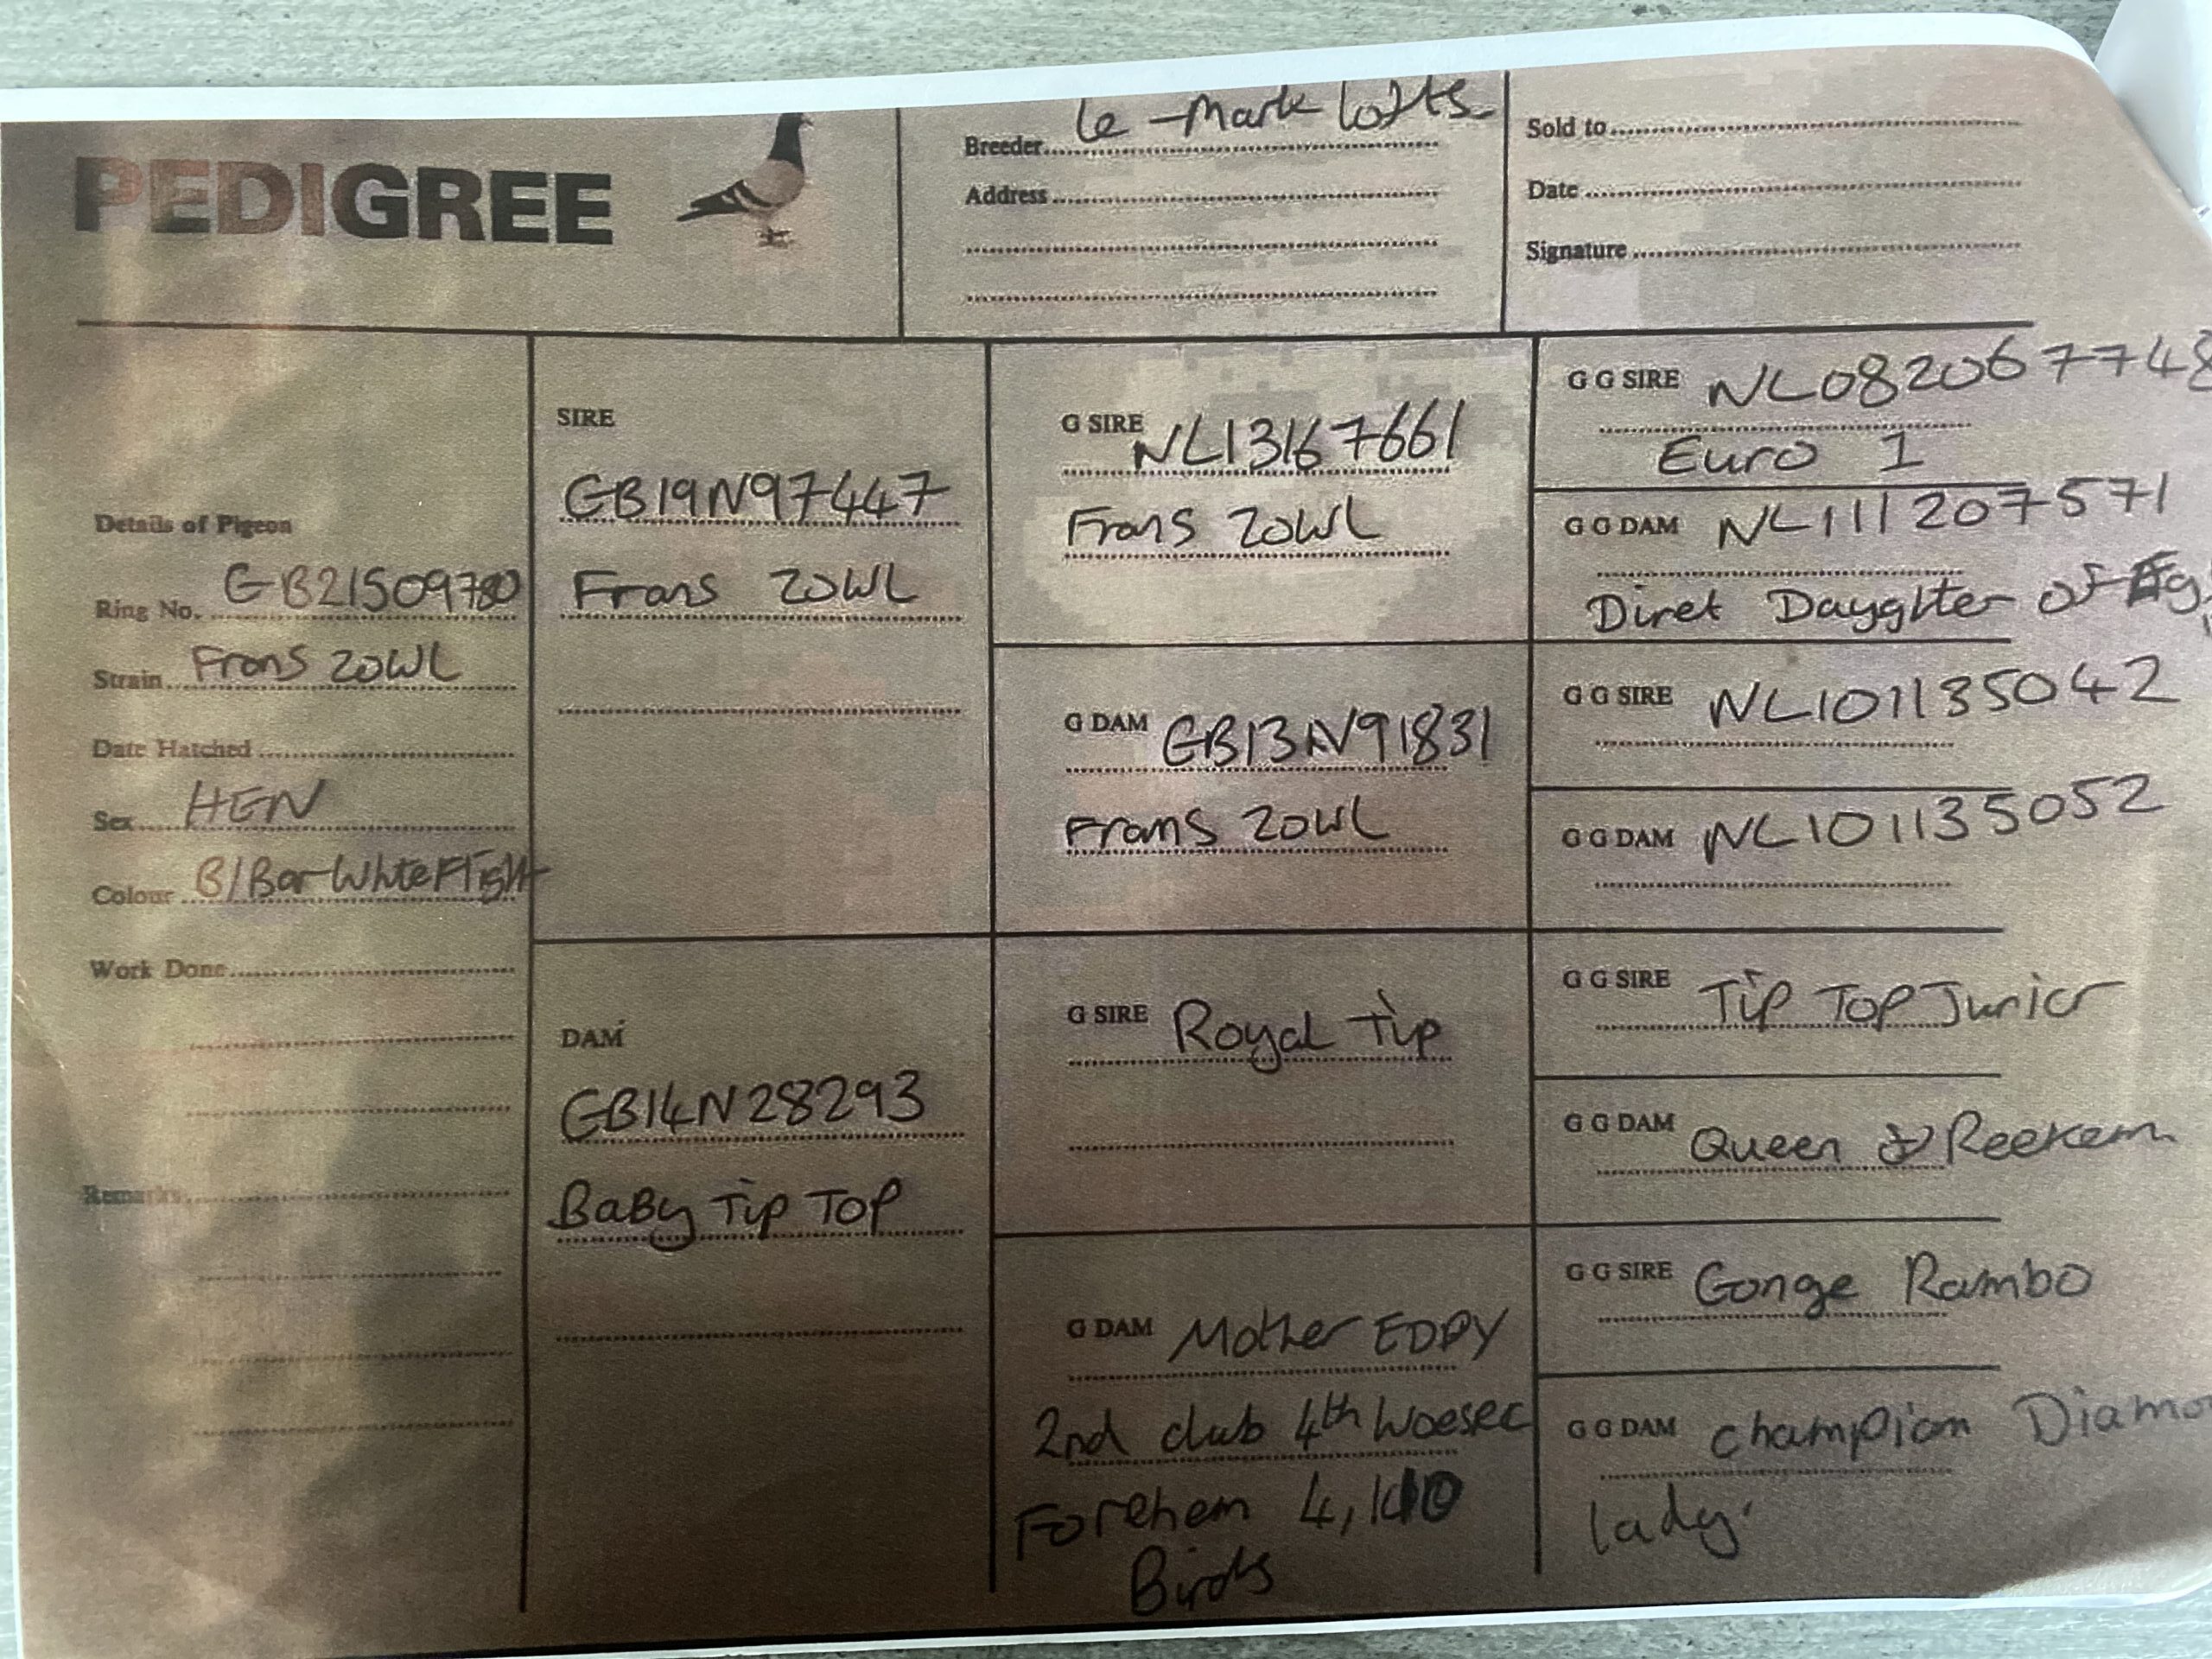 PEDIGREE
Breeder le-Mark lofts
Address
Sold to
Date
Signature
Details of Pigeon
Ring No. GB21S09780
Strain Frans ZOWL
Date Hatched
Sex HEN
Colour B/Bar White Flight
Work Done
Remarks
SIRE
GB19N97447
Frans ZOWL
DAM
GB14N28293
BaBy Tip TOP
G SIRE NL13167661
Frans ZOWL
G DAM GB13N91831
Frans ZOWL
G SIRE Royal Tip
G DAM Mother EDDY
2nd club 4th Woesec
Forehem 4,
Birds
G G SIRE NL082067748
Euro 1
G G DAM NL111207571
Diret Dayghter of
G G SIRE NL101135042
G G DAM NL101135052
G G SIRE Tip TOP Junior
G G DAM Queen Reekem
G G SIRE Gonge Rambo
G G DAM Champion Diamo
lady.